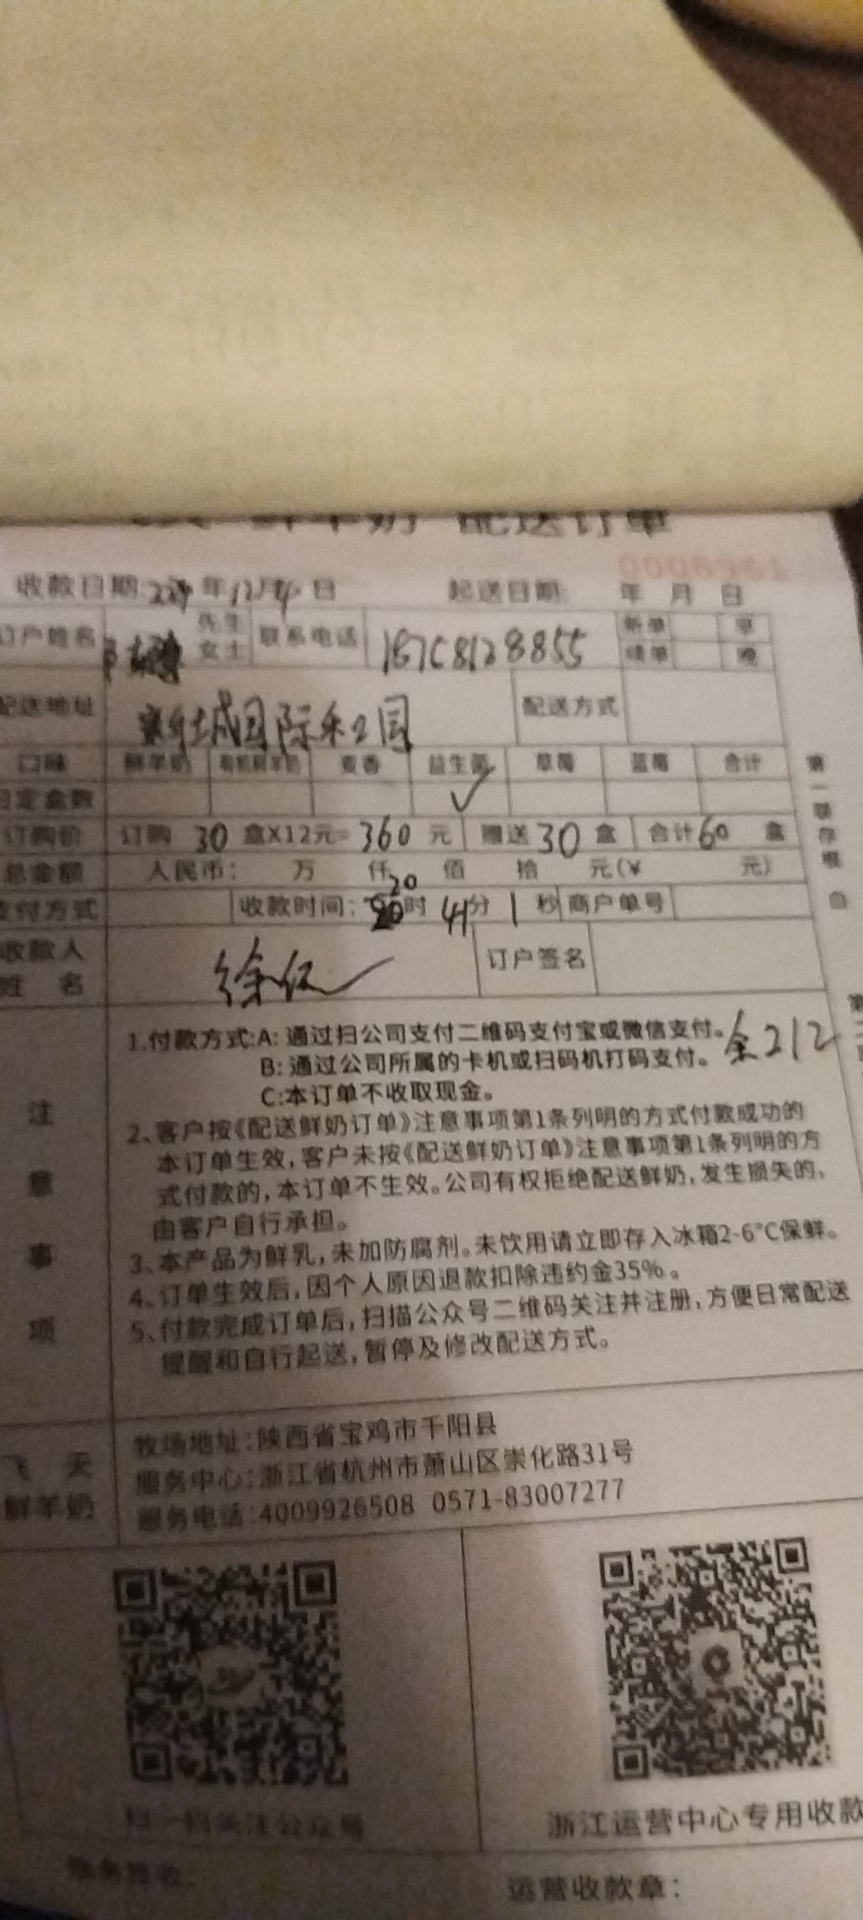 鲜羊奶 配送订单
收款日期: 年12月4日 起送日期: 年 月 日
订户姓名 先生 女士 联系电话 18768128855 新单 早
续单 晚
配送地址 城国际 公园 配送方式
口味 鲜羊奶 有机鲜羊奶 麦香 益生菌 草莓 蓝莓 合计
日定盒数 ✓
订购价 订购 30 盒X12元=360 元 赠送 30 盒 合计60 盒
总金额 人民币: 万 仟 佰 拾 元(¥ 元)
支付方式 收款时间: 20时 41分 1 秒 商户单号
收款人姓名 徐 订户签名
第一联存根
注意事项
1.付款方式:A: 通过扫公司支付二维码支付宝或微信支付。 余212
B: 通过公司所属的卡机或扫码机打码支付。
C:本订单不收取现金。
2、客户按《配送鲜奶订单》注意事项第1条列明的方式付款成功的
本订单生效,客户未按《配送鲜奶订单》注意事项第1条列明的方
式付款的,本订单不生效。公司有权拒绝配送鲜奶,发生损失的,
由客户自行承担。
3、本产品为鲜乳,未加防腐剂。未饮用请立即存入冰箱2-6°C保鲜。
4、订单生效后,因个人原因退款扣除违约金35%。
5、付款完成订单后,扫描公众号二维码关注并注册,方便日常配送
提醒和自行起送,暂停及修改配送方式。
飞天
鲜羊奶
牧场地址:陕西省宝鸡市千阳县
服务中心:浙江省杭州市萧山区崇化路31号
服务电话:4009926508 0571-83007277
扫一扫关注公众号 浙江运营中心专用收款
运营收款章: